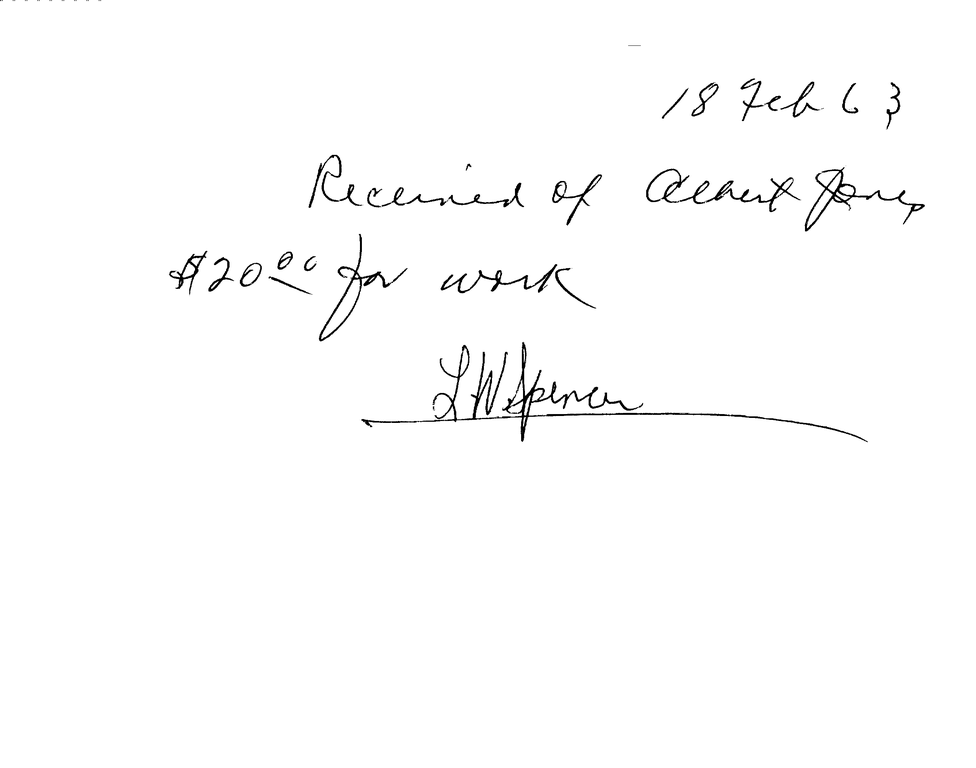 18 Feb 63
Received of Albert Jones
$20.00 for work
L W Spencer